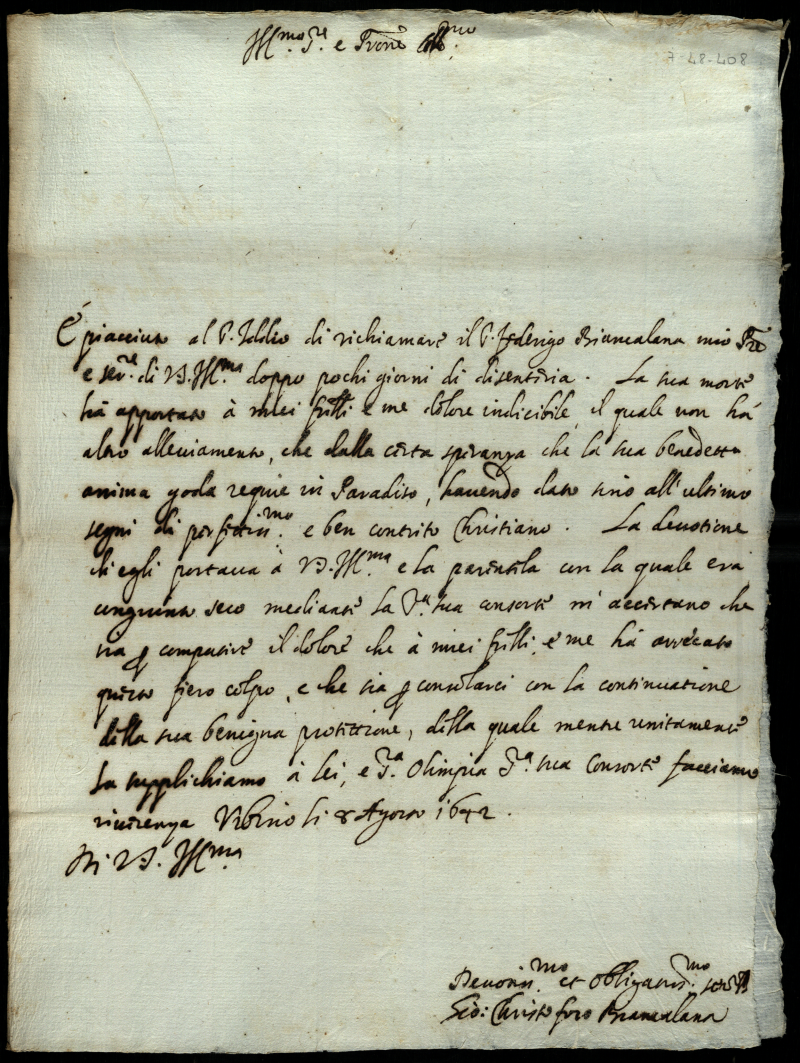 Ill.mo S.re e P'rone Oss.mo
7-48-408
É piacciuto al S. Iddio di richiamare il S. Federigo Biancalana mio P're
e ser.re di VS. Ill.ma doppo pochi giorni di disenteria. La sua morte
hà apportato à miei fr'lli e me dolore indicibile, il quale non hà
altro alleviamento, che dalla certa speranza che la sua benedetta
anima goda requie in Paradiso, havendo dato sino all'ultimo
segni di perfettiss.mo e ben contrito Christiano. La devotione
ch'egli portava à VS. Ill.ma e la parentela con la quale era
congiunto seco mediante la S.ra sua consorte m'accertano che
sia p compatire il dolore che à miei fr'lli, e me hà arrecato
questo fiero colpo, e che sia p consolarci con la continuatione
della sua benigna protettione, della quale mentre unitamente
la supplichiamo à lei, e S.ra Olimpia S.ra sua Consorte facciamo
riverenza Urbino li 8 Agosto 1642.
Di VS. Ill.ma
Devotiss.mo et Obligatiss.mo ser.re
Gio: Christoforo Biancalana